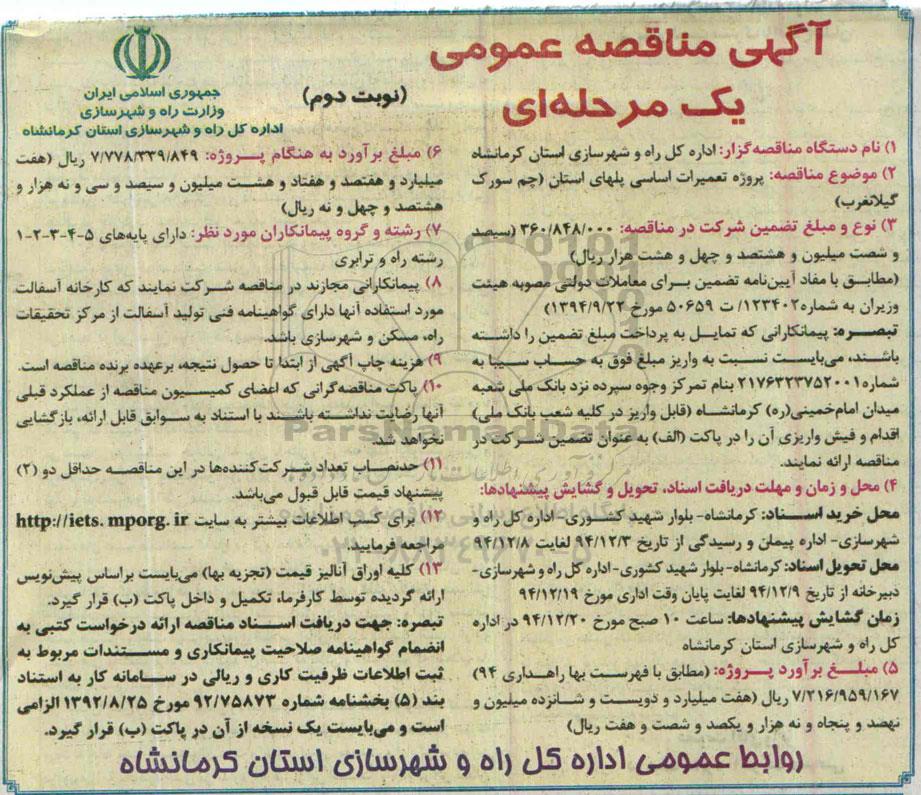 آگهی مناقصه عمومی
یک مرحله‌ای
(نوبت دوم)
جمهوری اسلامی ایران
وزارت راه و شهرسازی
اداره کل راه و شهرسازی استان کرمانشاه
۱) نام دستگاه مناقصه‌گزار: اداره کل راه و شهرسازی استان کرمانشاه
۲) موضوع مناقصه: پروژه تعمیرات اساسی پلهای استان (چم سورک
گیلانغرب)
۳) نوع و مبلغ تضمین شرکت در مناقصه: ۳۶۰/۸۴۸/۰۰۰ (سیصد
و شصت میلیون و هشتصد و چهل و هشت هزار ریال)
(مطابق با مفاد آیین‌نامه تضمین برای معاملات دولتی مصوبه هیئت
وزیران به شماره ۱۲۳۴۰۲/ ت ۵۰۶۵۹ مورخ ۱۳۹۴/۹/۲۲)
تبصره: پیمانکارانی که تمایل به پرداخت مبلغ تضمین را داشته
باشند، می‌بایست نسبت به واریز مبلغ فوق به حساب سیبا به
شماره ۲۱۷۶۳۲۳۷۵۲۰۰۱ بنام تمرکز وجوه سپرده نزد بانک ملی شعبه
میدان امام‌خمینی(ره) کرمانشاه (قابل واریز در کلیه شعب بانک ملی)
اقدام و فیش واریزی آن را در پاکت (الف) به عنوان تضمین شرکت در
مناقصه ارائه نمایند.
۴) محل و زمان و مهلت دریافت اسناد، تحویل و گشایش پیشنهادها:
محل خرید اسناد: کرمانشاه- بلوار شهید کشوری- اداره کل راه و
شهرسازی- اداره پیمان و رسیدگی از تاریخ ۹۴/۱۲/۳ لغایت ۹۴/۱۲/۸
محل تحویل اسناد: کرمانشاه- بلوار شهید کشوری- اداره کل راه و شهرسازی-
دبیرخانه از تاریخ ۹۴/۱۲/۹ لغایت پایان وقت اداری مورخ ۹۴/۱۲/۱۹
زمان گشایش پیشنهادها: ساعت ۱۰ صبح مورخ ۹۴/۱۲/۲۰ در اداره
کل راه و شهرسازی استان کرمانشاه
۵) مبلغ برآورد پروژه: (مطابق با فهرست بها راهداری ۹۴)
۷/۲۱۶/۹۵۹/۱۶۷ ریال (هفت میلیارد و دویست و شانزده میلیون و
نهصد و پنجاه و نه هزار و یکصد و شصت و هفت ریال)
۶) مبلغ برآورد به هنگام پروژه: ۷/۷۷۸/۳۳۹/۸۴۹ ریال (هفت
میلیارد و هفتصد و هفتاد و هشت میلیون و سیصد و سی و نه هزار و
هشتصد و چهل و نه ریال)
۷) رشته و گروه پیمانکاران مورد نظر: دارای پایه‌های ۵-۴-۳-۲-۱
رشته راه و ترابری
۸) پیمانکارانی مجازند در مناقصه شرکت نمایند که کارخانه آسفالت
مورد استفاده آنها دارای گواهینامه فنی تولید آسفالت از مرکز تحقیقات
راه، مسکن و شهرسازی باشد.
۹) هزینه چاپ آگهی از ابتدا تا حصول نتیجه، برعهده برنده مناقصه است.
۱۰) پاکت مناقصه‌گرانی که اعضای کمیسیون مناقصه از عملکرد قبلی
آنها رضایت نداشته باشند با استناد به سوابق قابل ارائه، بازگشایی
نخواهد شد.
۱۱) حدنصاب تعداد شرکت‌کننده‌ها در این مناقصه حداقل دو (۲)
پیشنهاد قیمت قابل قبول می‌باشد.
۱۲) برای کسب اطلاعات بیشتر به سایت http://iets.mporg.ir
مراجعه فرمایید.
۱۳) کلیه اوراق آنالیز قیمت (تجزیه بها) می‌بایست براساس پیش‌نویس
ارائه گردیده توسط کارفرما، تکمیل و داخل پاکت (ب) قرار گیرد.
تبصره: جهت دریافت اسناد مناقصه ارائه درخواست کتبی به
انضمام گواهینامه صلاحیت پیمانکاری و مستندات مربوط به
ثبت اطلاعات ظرفیت کاری و ریالی در سامانه کار به استناد
بند (۵) بخشنامه شماره ۹۲/۷۵۸۷۳ مورخ ۱۳۹۲/۸/۲۵ الزامی
است و می‌بایست یک نسخه از آن در پاکت (ب) قرار گیرد.
روابط عمومی اداره کل راه و شهرسازی استان کرمانشاه
ParsNamadData